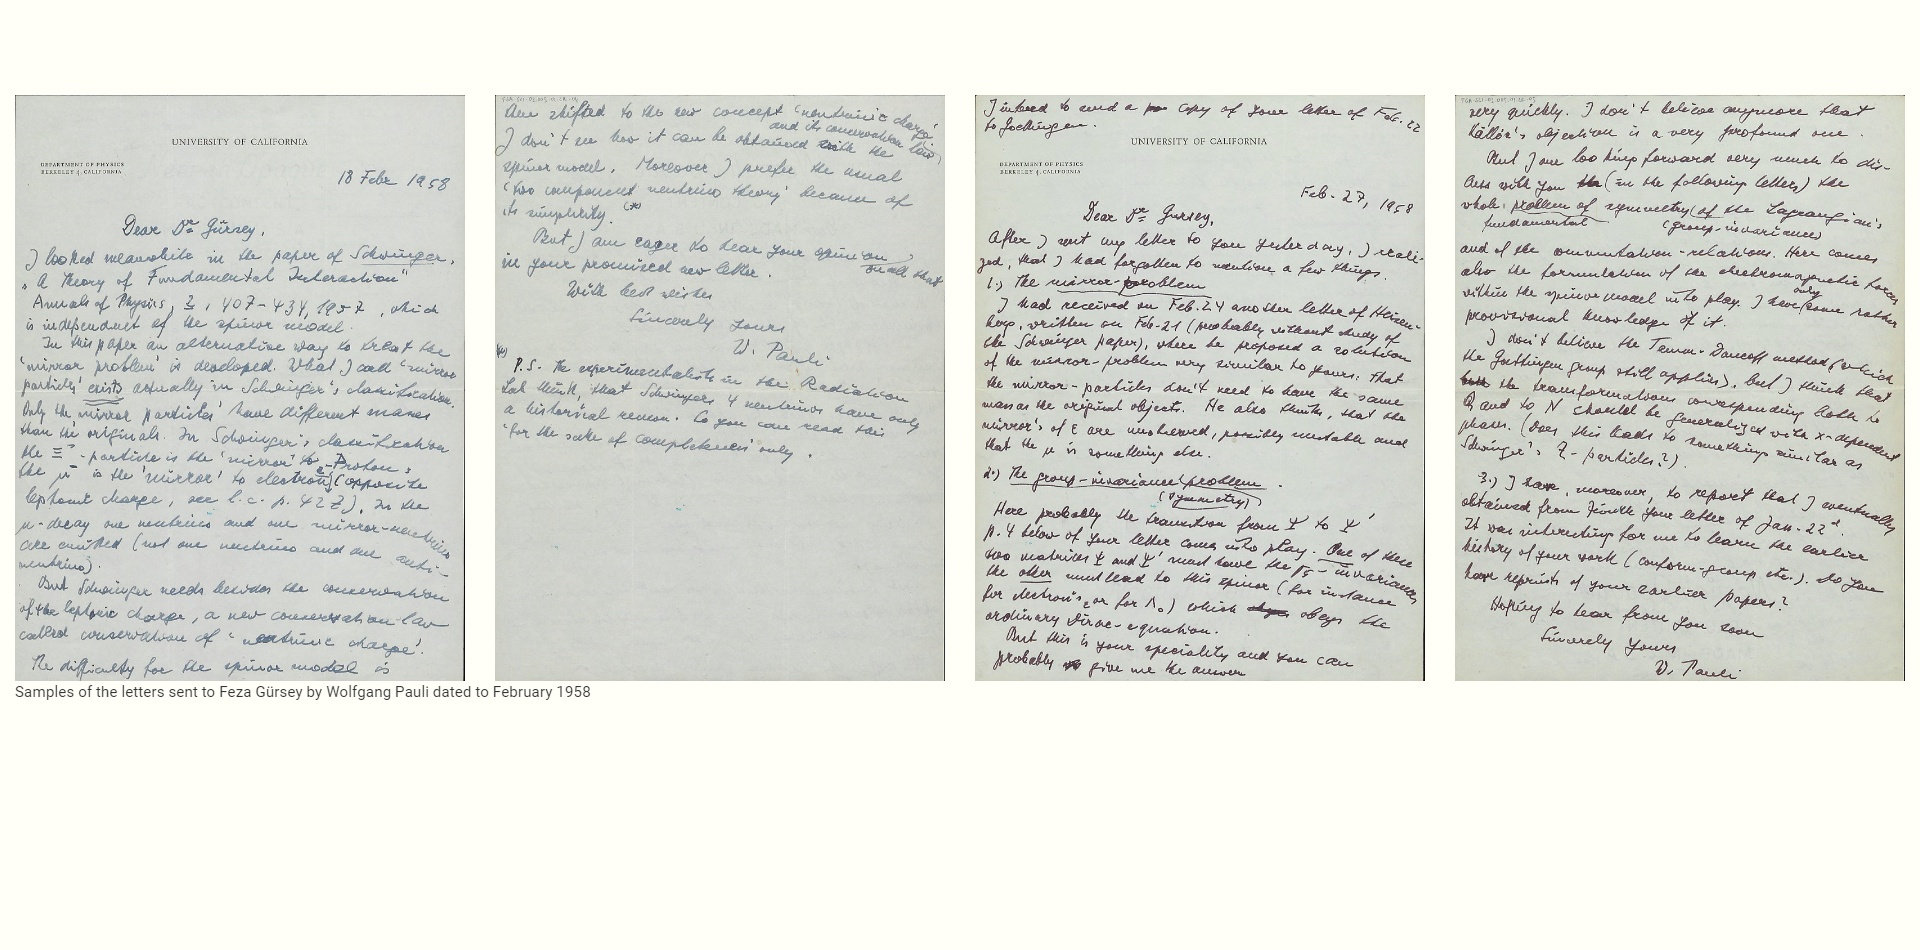 UNIVERSITY OF CALIFORNIA
DEPARTMENT OF PHYSICS
BERKELEY 4, CALIFORNIA
18 Febr 1958
Dear Dr Gürsey,
I looked meanwhile in the paper of Schwinger,
"A Theory of Fundamental Interaction"
Annals of Physics, 2, 407-434, 1957, which
is independent of the spinor model.
In this paper an alternative way to treat the
'mirror problem' is developed. What I call 'mirror
particles' exists actually in Schwinger's classification.
Only the 'mirror particles' have different masses
than the originals. In Schwinger's classification
the Ξ⁻-particle is the 'mirror' to Proton,
the μ⁻ is the 'mirror' to electron (opposite
leptonic charge, see l.c. p. 427). In the
μ-decay one neutrino and one mirror-neutrino
are emitted (not one neutrino and one anti-
neutrino).
But Schwinger needs besides the conservation
of the leptonic charge, a new conservation-law
called conservation of "neutrinic charge'.
The difficulty for the spinor model is
then shifted to the new concept 'neutrinic charge'
and its conservation law
I don't see how it can be obtained with the
spinor model. Moreover I prefer the usual
'two component neutrino theory' because of
its simplicity. (*)
But I am eager to hear your opinion
on all that
in your promised new letter.
With best wishes
Sincerely yours
W. Pauli
(*) P.S. The experimentalists in the Radiation
Lab think, that Schwingers 4 neutrinos have only
a historical reason. So you can read this
'for the sake of completeness' only.
I intend to send a copy of your letter of Feb. 22
to Goettingen.
UNIVERSITY OF CALIFORNIA
DEPARTMENT OF PHYSICS
BERKELEY 4, CALIFORNIA
Feb. 27, 1958
Dear Dr Gursey,
After I sent my letter to you yesterday, I reali-
zed, that I had forgotten to mention a few things.
1.) The mirror-problem
I had received on Feb. 24 another letter of Heisen-
berg, written on Feb. 21 (probably without study of
the Schwinger paper), where he proposed a solution
of the mirror-problem very similar to yours: That
the mirror-particles don't need to have the same
mass as the original objects. He also thinks, that the
mirror's of ε are unobserved, possibly unstable and
that the μ is something else.
2.) The group-invariance problem.
(symmetry)
Here probably the transition from Ψ to Ψ'
p. 4 below of your letter comes into play. One of these
two matrices Ψ and Ψ' must have the γ5-invariance,
the other must lead to this spinor (for instance
for electrons, or for Λ0) which obeys the
ordinary Dirac-equation.
But this is your speciality and you can
probably give me the answer
very quickly. I don't believe anymore that
Källén's objection is a very profound one.
But I am looking forward very much to dis-
cuss with you (in the following letters) the
whole problem of symmetry of the Lagrangian's
fundamental (group-invariance)
and of the commutation-relations. Here comes
also the formulation of the electromagnetic forces
within the spinor model into play. I have only some rather
provisional knowledge of it.
I don't believe the Tamm-Dancoff method (which
the Goettingen group still applies), but I think that
the transformations corresponding both to
Q and to N should be generalized with x-dependent
phases. (Does this leads to something similar as
Schwinger's Z-particles?).
3.) I have, moreover, to report that I eventually
obtained from your letter of Jan. 22d.
It was interesting for me to learn the earlier
history of your work (conform-group etc.). Do you
have reprints of your earlier papers?
Hoping to hear from you soon
Sincerely yours
W. Pauli
Samples of the letters sent to Feza Gürsey by Wolfgang Pauli dated to February 1958